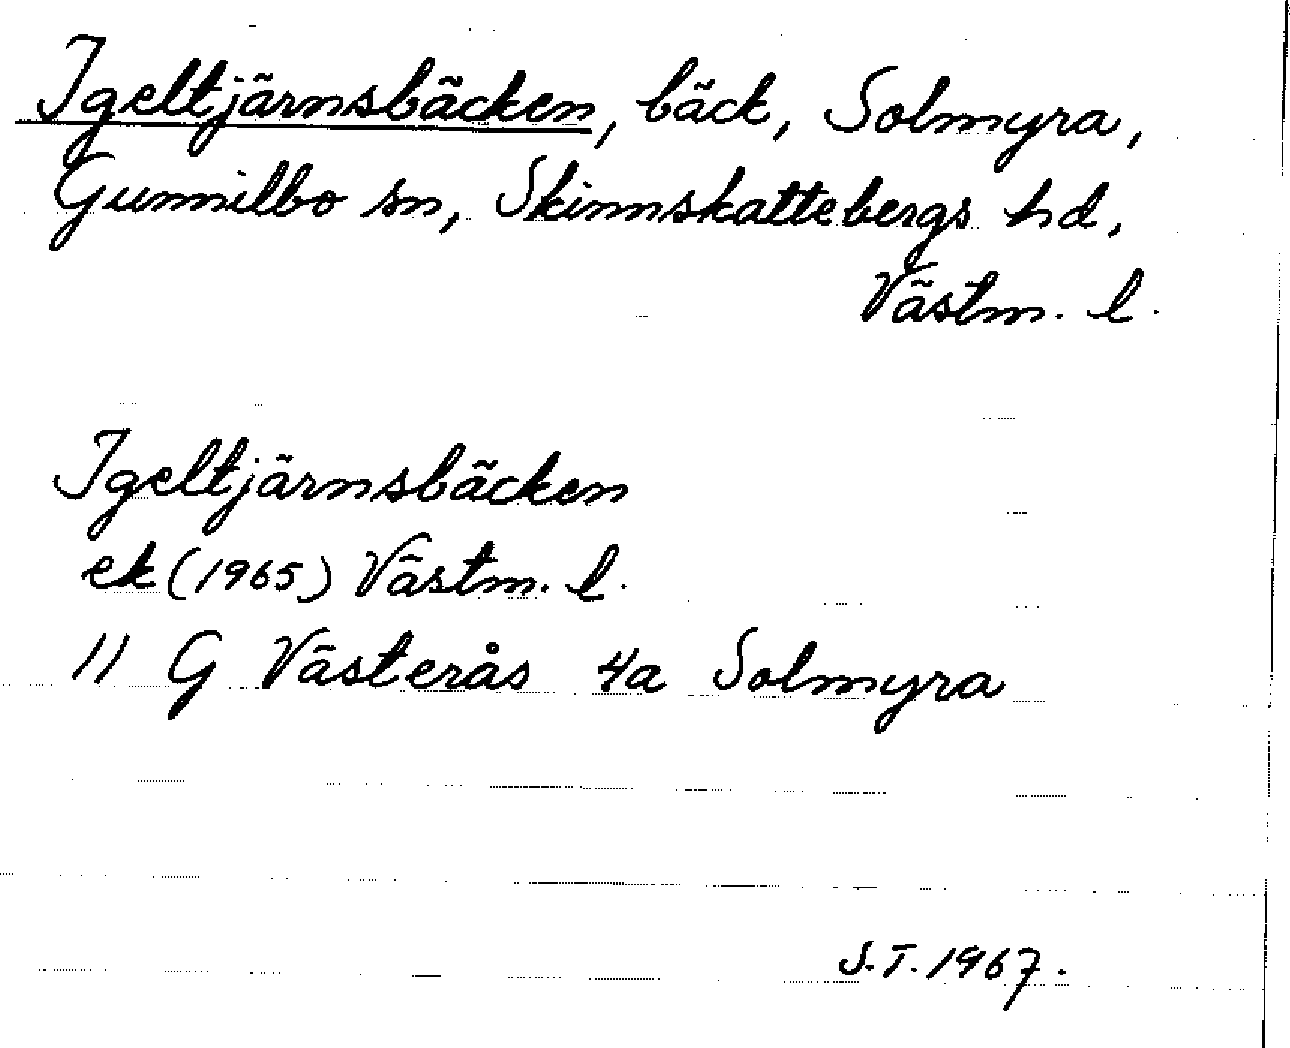 Igeltjärnsbäcken, bäck, Solmyra,
Gunnilbo sn, Skinnskattebergs hd,
Västm. l.
Igeltjärnsbäcken
ek (1965) Västm. l.
11 G Västerås 4a Solmyra
S.T. 1967.